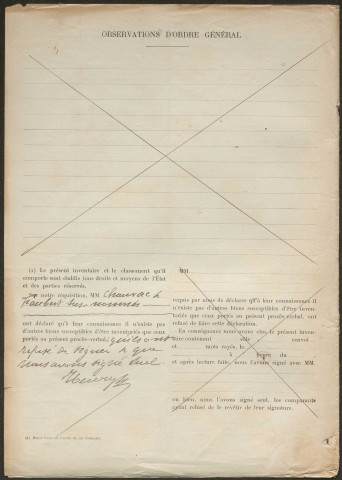 OBSERVATIONS D'ORDRE GÉNÉRAL
(1) Le présent inventaire et le classement qu'il
comporte sont établis tous droits et moyens de l'État
et des parties réservés.
Sur notre réquisition, MM. Chauvac &
sus-nommés
ont déclaré qu'à leur connaissance il n'existe pas
d'autres biens susceptibles d'être inventoriés que ceux
portés au présent procès-verbal, qu'ils ont
refusé de signer & que
nous avons signé seul
MM.
requis par nous de déclarer qu'à leur connaissance il
n'existe pas d'autres biens susceptibles d'être inven-
toriés que ceux portés au présent procès-verbal, ont
refusé de faire cette déclaration.
En conséquence nous avons clos le présent inven-
taire contenant rôle renvoi
et mots rayés, le
à heures du
et après lecture faite, nous l'avons signé avec MM.
ou bien, nous l'avons signé seul, les comparants
ayant refusé de le revêtir de leur signature.